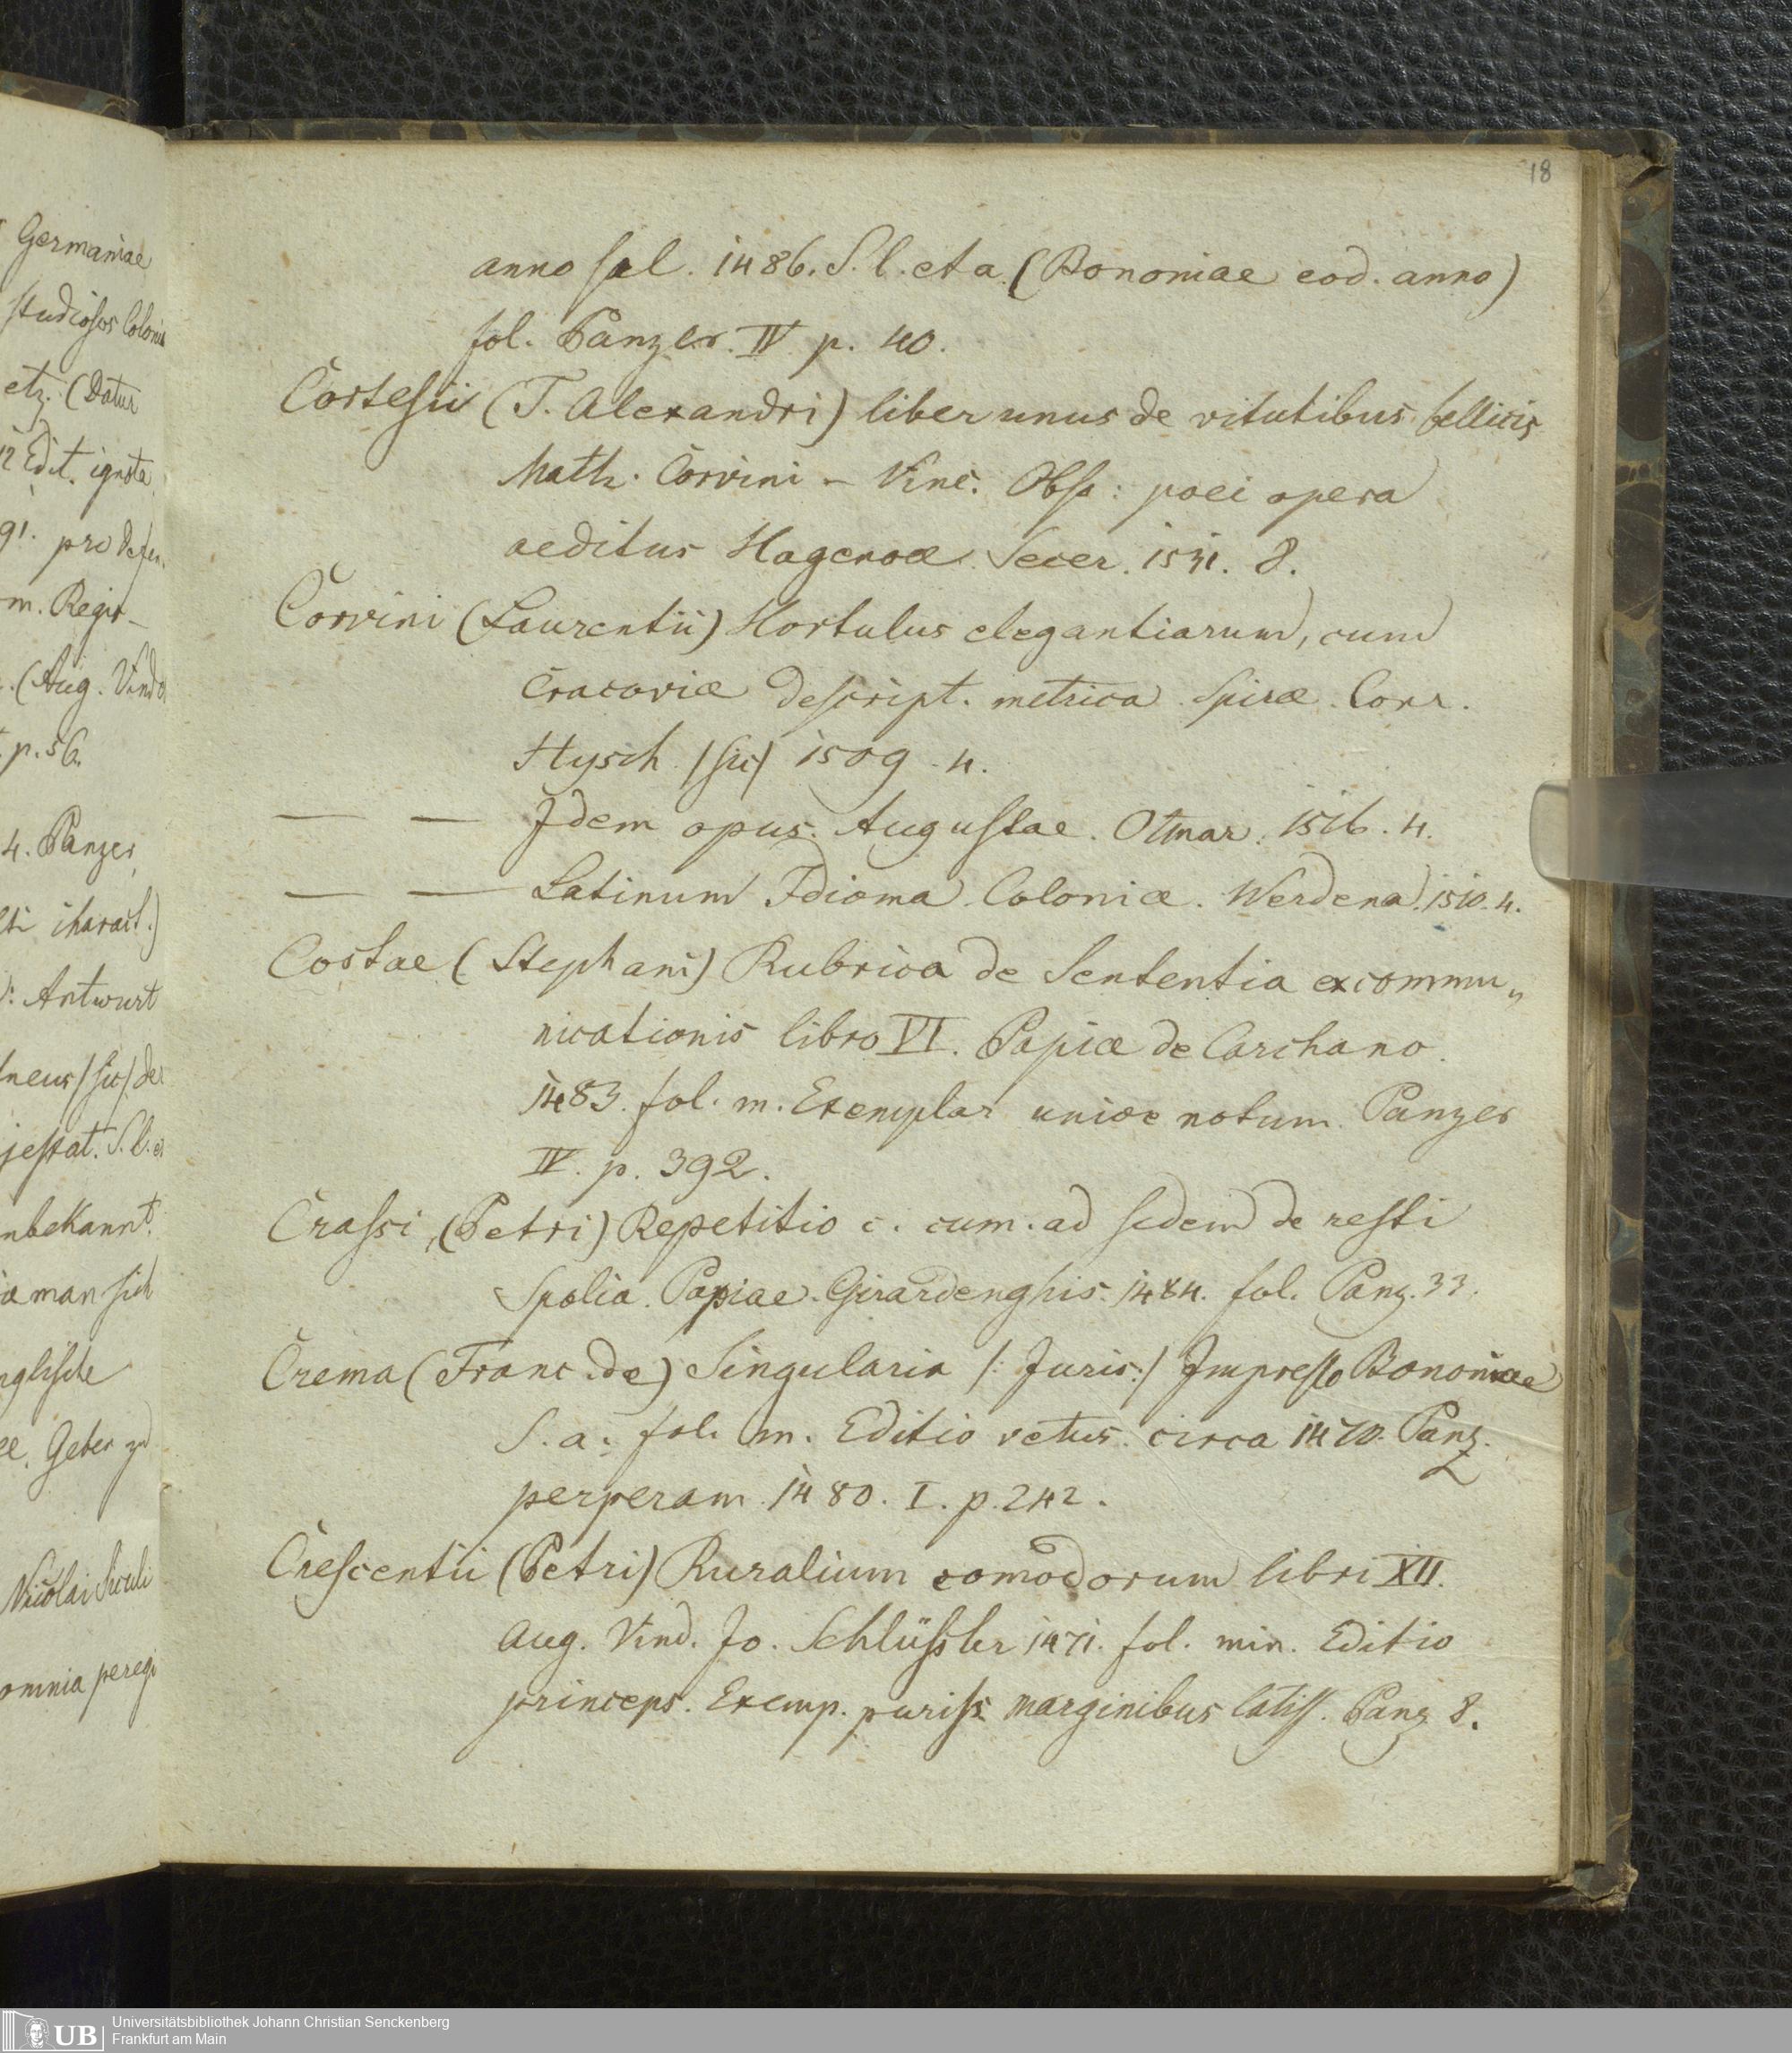 Germaniae
studiosos Colonia
etz. (Datur
Edit. ignota
91. pro defen.
m. Regio-
(Aug. Vindo
p. 56.
4. Panzer
charact.)
Antwurt
neus /sic/ der
jestat. S. l. et
nbekannt.
man sich
nglische
Geber zu
Nicolai Siculi
omnia peregr
18
anno sal. 1486. S. l. et a. (Bononiae eod. anno)
fol. Panzer. IV p. 40.
Cortesii (T. Alexandri) liber unus de vitutibus bellicis
Math. Corvini - Vinc. Obso: poei opera
aeditus Hagenoæ. Secer. 1531. 8.
Corvini (Laurentii) Hortulus elegantiarum, cum
Cracoviæ descript. metrica. Spiræ. Conr.
Hysch /sic/ 1509. 4.
— — Idem opus. Augustae. Otmar. 1516. 4.
— — Latinum Idioma. Coloniæ. Werdena. 1510. 4.
Costae (Stephani) Rubrica de Sententia excommu„
nicationis libro VI. Papiæ de Carchano.
1483. fol. m. Exemplar unice notum. Panzer
IV. p. 392.
Crassi, (Petri) Repetitio c. cum. ad sedem de resti
Spolia. Papiae. Girardenghis. 1484. fol. Panz. 33.
Crema (Franc. de) Singularia /: Juris :/ Impresso Bononiae
S. a. fol. m. Editio vetus. circa 1470. Panz.
perperam 1480. I. p. 242.
Crescentii (Petri) Ruralium comodorum libri XII.
Aug. Vind. Jo. Schlüssler 1471. fol. min. Editio
princeps. Exemp. puriss marginibus latiss. Panz 8.
UB
Universitätsbibliothek Johann Christian Senckenberg
Frankfurt am Main